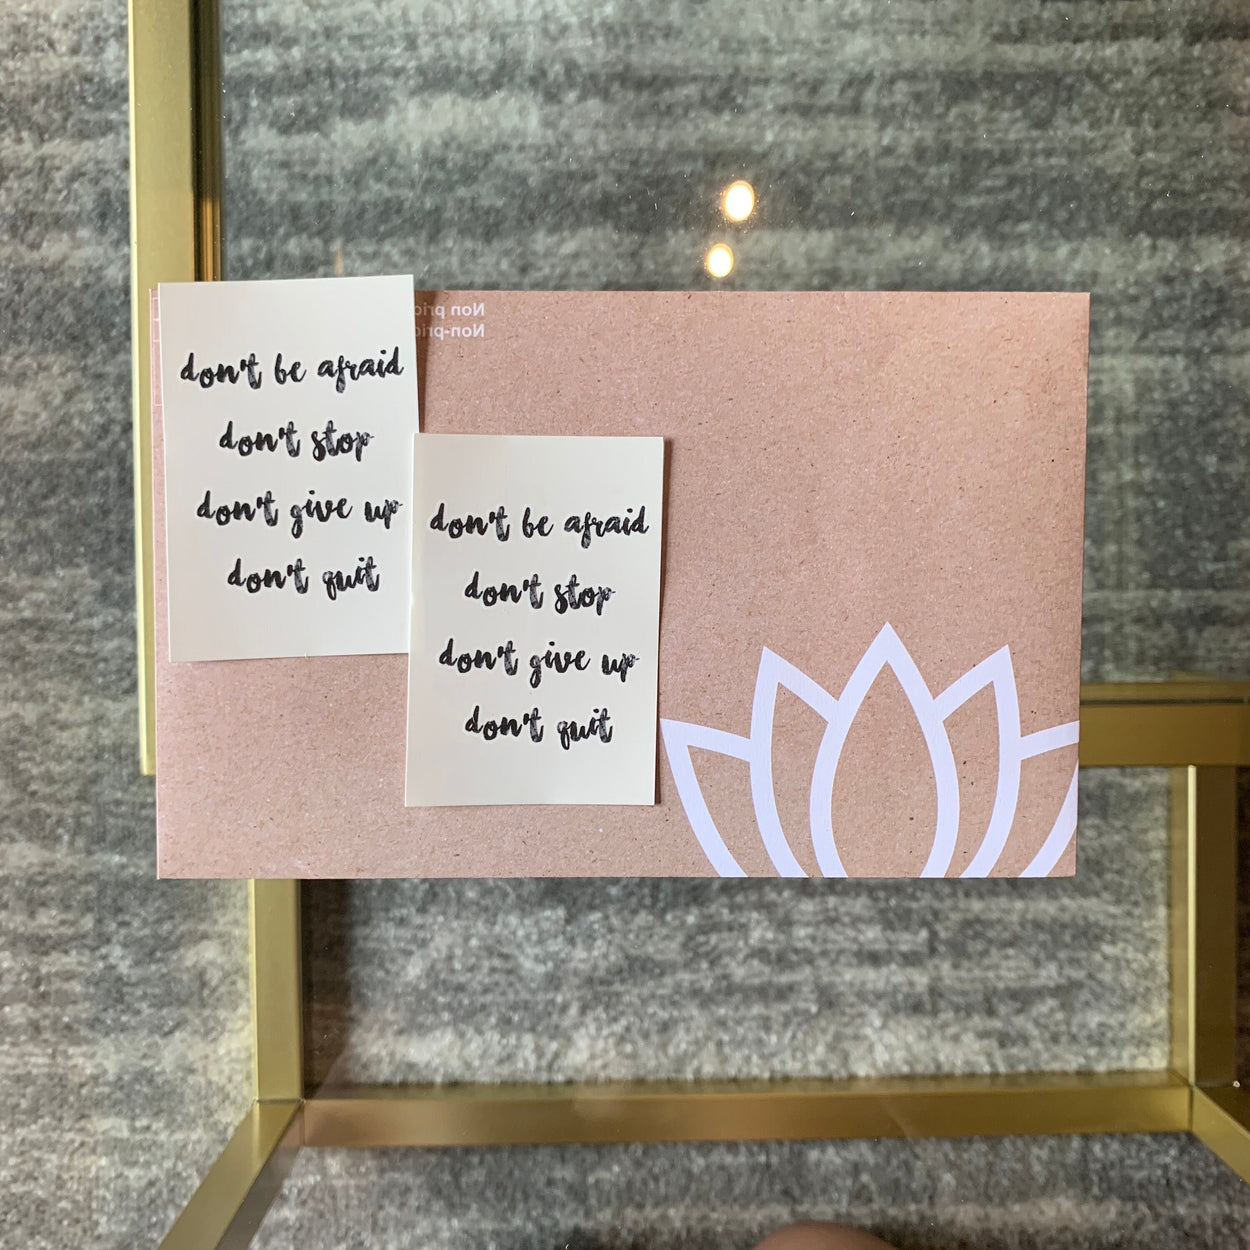 Non
Non-
don't be afraid
don't stop
don't give up
don't quit
don't be afraid
don't stop
don't give up
don't quit